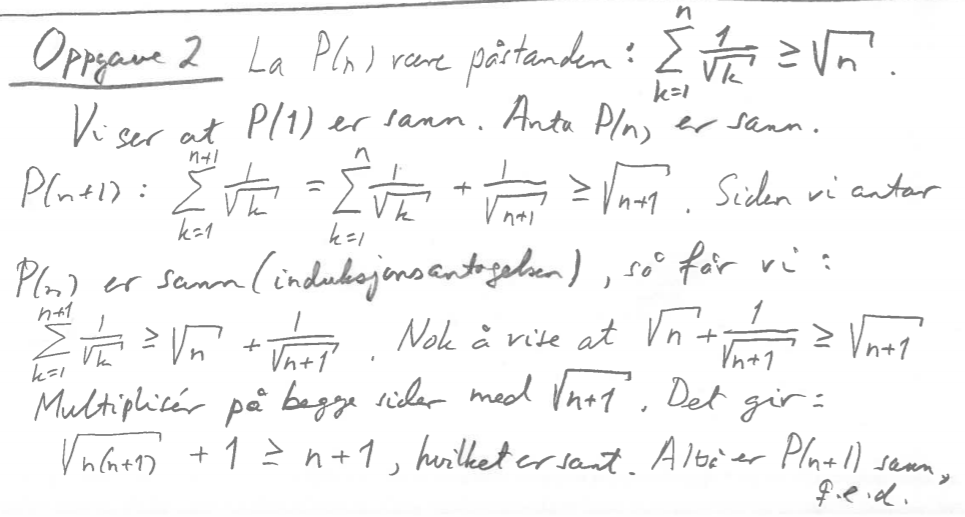 Oppgave 2 La P(n) være påstanden: $\sum_{k=1}^{n} \frac{1}{\sqrt{k}} \geq \sqrt{n}$.
Vi ser at P(1) er sann. Anta P(n) er sann.
P(n+1): $\sum_{k=1}^{n+1} \frac{1}{\sqrt{k}} = \sum_{k=1}^{n} \frac{1}{\sqrt{k}} + \frac{1}{\sqrt{n+1}} \geq \sqrt{n+1}$. Siden vi antar
P(n) er sann (induksjonsantagelsen), så får vi:
$\sum_{k=1}^{n+1} \frac{1}{\sqrt{k}} \geq \sqrt{n} + \frac{1}{\sqrt{n+1}}$. Nok å vise at $\sqrt{n} + \frac{1}{\sqrt{n+1}} \geq \sqrt{n+1}$
Multiplisér på begge sider med $\sqrt{n+1}$. Det gir:
$\sqrt{n(n+1)} + 1 \geq n+1$, hvilket er sant. Altså er P(n+1) sann,
q.e.d.